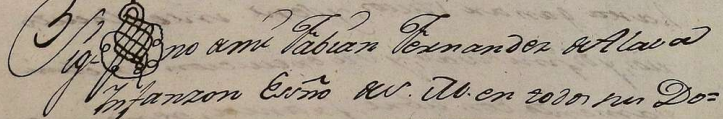 Sig-no de mi Fabian Fernandez de Alava
Infanzon Esño de S. M. en todos sus Do=